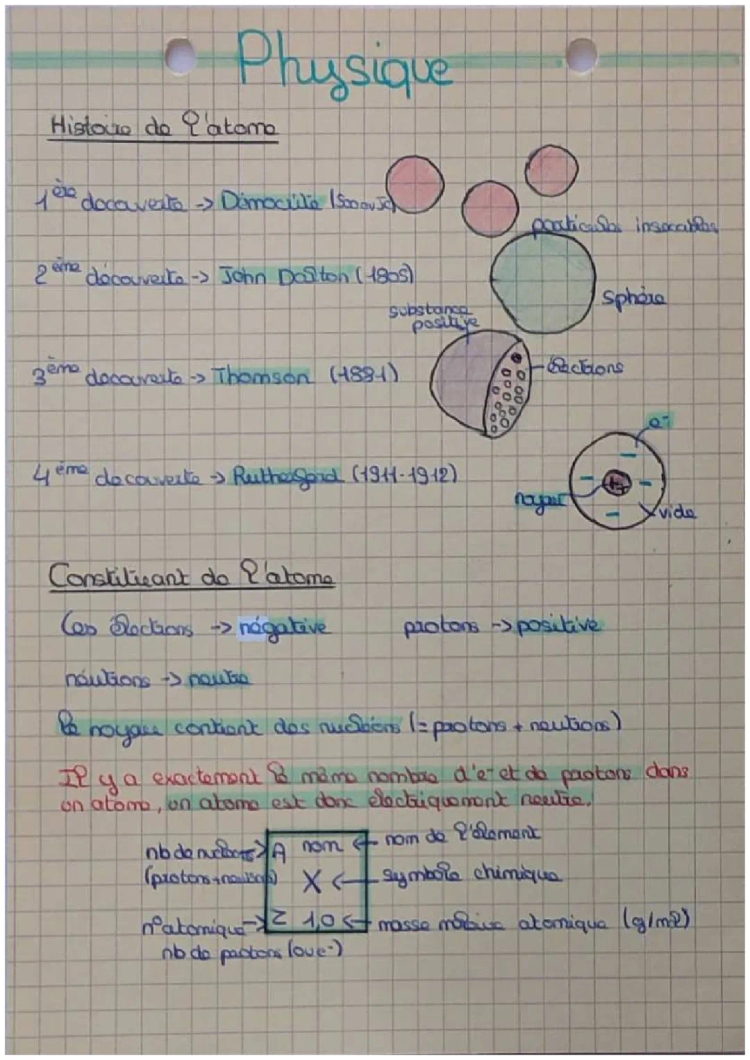 Physique
Histoire de l'atome
1ère decouverte -> Démocrite (500 av JC)
particules insecables
2ème découverte -> John Dalton (1805)
Sphère
substance
positive
3ème decouverte -> Thomson (1891)
électrons
e-
4ème decouverte -> Rutherford (1911-1912)
noyau
vide
Constituant de l'atome
Les électrons -> négative protons -> positive
neutrons -> neutre
le noyau contient des nucléons (= protons + neutrons)
Il y a exactement le même nombre d'e- et de protons dans
un atome, un atome est donc electriquement neutre.
nb de nucléons -> A nom <- nom de l'élement
(protons+neutrons) X <- symbole chimique
n° atomique -> Z 1,0 <- masse molaire atomique (g/mol)
nb de protons (ou e-)